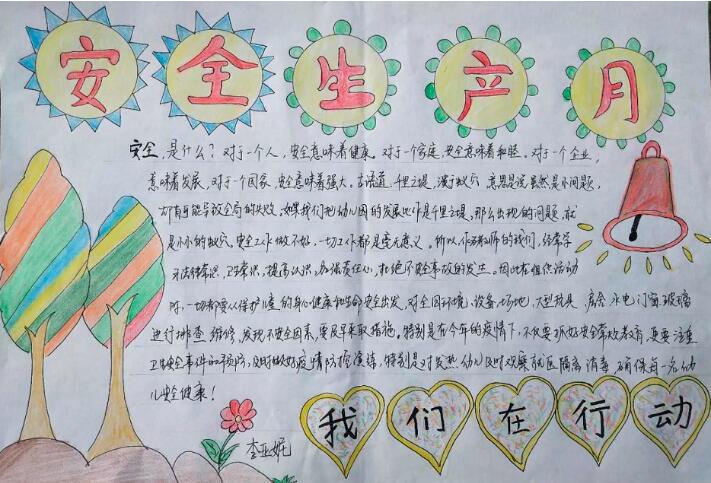 安全生产月
安全,是什么?对于一个人,安全意味着健康。对于一个家庭,安全意味着和睦。对于一个企业,
意味着发展,对于一个国家,安全意味着强大。古语道:千里之堤,溃于蚁穴,意思是说虽然是小问题,
却有可能导致全局的失败,如果我们把幼儿园的发展比作是千里之堤,那么出现的问题就
是小小的蚁穴。安全工作做不好,一切工作都是毫无意义。所以,作为教师的我们,经常学
习法律常识,卫生常识,提高认识,加强责任心,杜绝不安全事故的发生。因此在组织活动
时,一切都要从保护儿童的身心健康和生命安全出发,对全园环境、设备、场地、大型玩具、房舍、水电门窗玻璃
进行排查、维修,发现不安全因素,要及早采取措施。特别是在今年的疫情下,不仅要抓好安全常规教育,更要注重
卫生安全事件的预防,及时做好疫情防控演练,特别是对发热幼儿及时观察就医隔离消毒,确保每一名幼
儿安全健康!
我们在行动
李亚妮